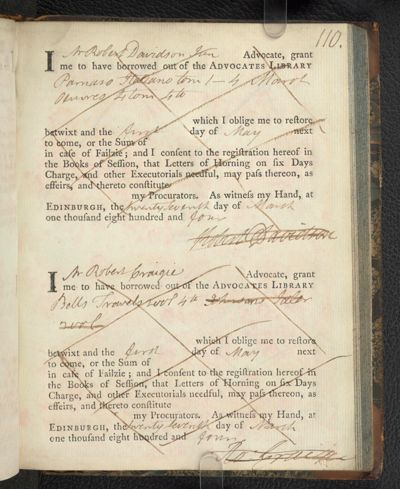 110.
I Mr Robert Davidson Jun Advocate, grant
me to have borrowed out of the ADVOCATES LIBRARY
Parnaso Italiano tom 1-4
4 tom 4to
which I oblige me to reſtore
betwixt and the first day of May next
to come, or the Sum of
in caſe of Failzie; and I conſent to the regiſtration hereof in
the Books of Seſſion, that Letters of Horning on ſix Days
Charge, and other Executorials needful, may paſs thereon, as
effeirs, and thereto conſtitute
my Procurators. As witneſs my Hand, at
EDINBURGH, the twenty seventh day of March
one thouſand eight hundred and four
Robert Davidson
I Mr Robert Craigie Advocate, grant
me to have borrowed out of the ADVOCATES LIBRARY
Bells Travels 2 vol 4to
2 vol
which I oblige me to reſtore
betwixt and the first day of May next
to come, or the Sum of
in caſe of Failzie; and I conſent to the regiſtration hereof in
the Books of Seſſion, that Letters of Horning on ſix Days
Charge, and other Executorials needful, may paſs thereon, as
effeirs, and thereto conſtitute
my Procurators. As witneſs my Hand, at
EDINBURGH, the twenty seventh day of March
one thouſand eight hundred and four